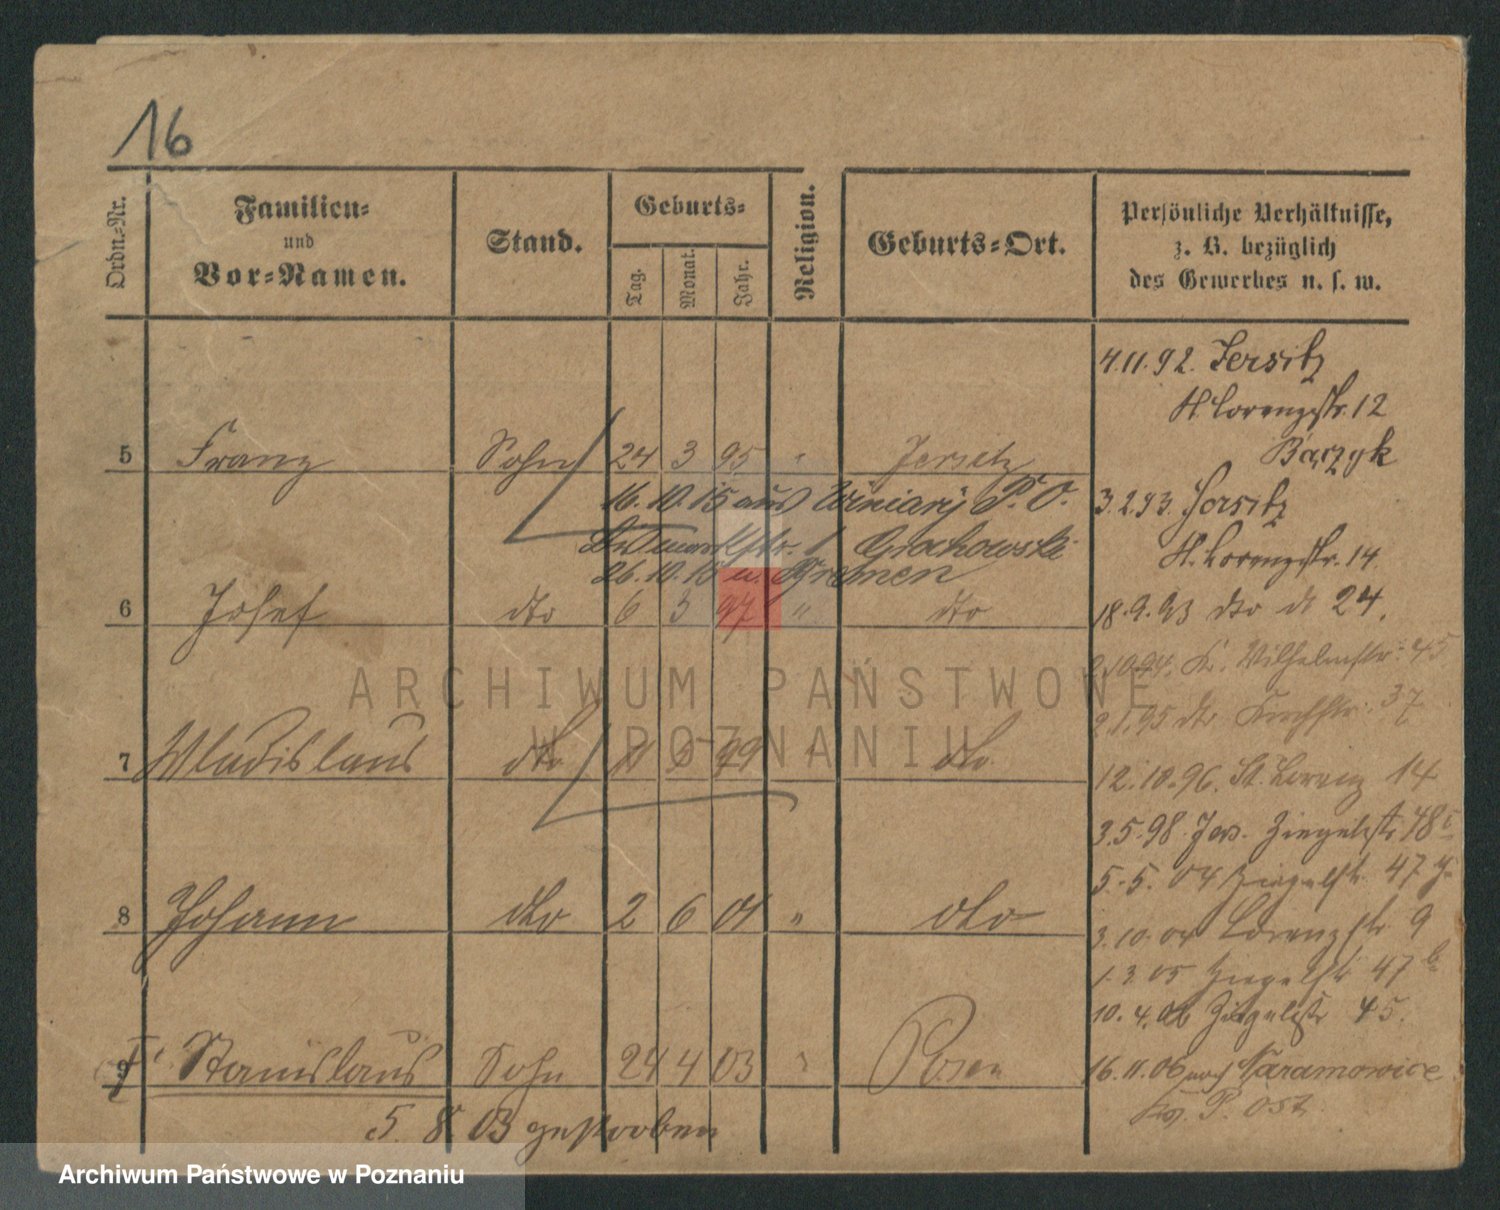 16
Ordn.-Nr.
Familien-
und
Vor-Namen.
Stand.
Geburts-
Tag.
Monat.
Jahr.
Religion.
Geburts-Ort.
Persönliche Verhältnisse,
z. B. bezüglich
des Gewerbes u. s. w.
4.11.92. Jersitz
St Lorenzstr. 12
Barzyk
5 Franz Sohn 24 3 95 " Jersitz
16.10.15 aus Winiary P. O.
1 Grochowski
26.10.15 n. Bremen
3.2.93. Jersitz
St. Lorenzstr. 14
6 Josef dto 6 3 97 " dto
18.9.93 dto dt 24.
2.10.94. K. Wilhelmstr. 45
2.1.95 dto Kirchstr. 37
7 Wladislaus dto 99 " dto
12.10.96. St. Lorenz 14
3.5.98. Jers. Ziegelstr 48
5.5.04 Ziegelstr 47
8 Johann dto 2 6 01 " dto
3.10.04 Lorenzstr 9
1.3.05 Ziegelstr 47
10.4.06 Ziegelstr 45.
9 Stanislaus Sohn 24 4 03 " Posen
16.11.06 nach Naramowice
P. Ost
5. 8. 03 gestorben
ARCHIWUM PAŃSTWOWE
W POZNANIU
Archiwum Państwowe w Poznaniu